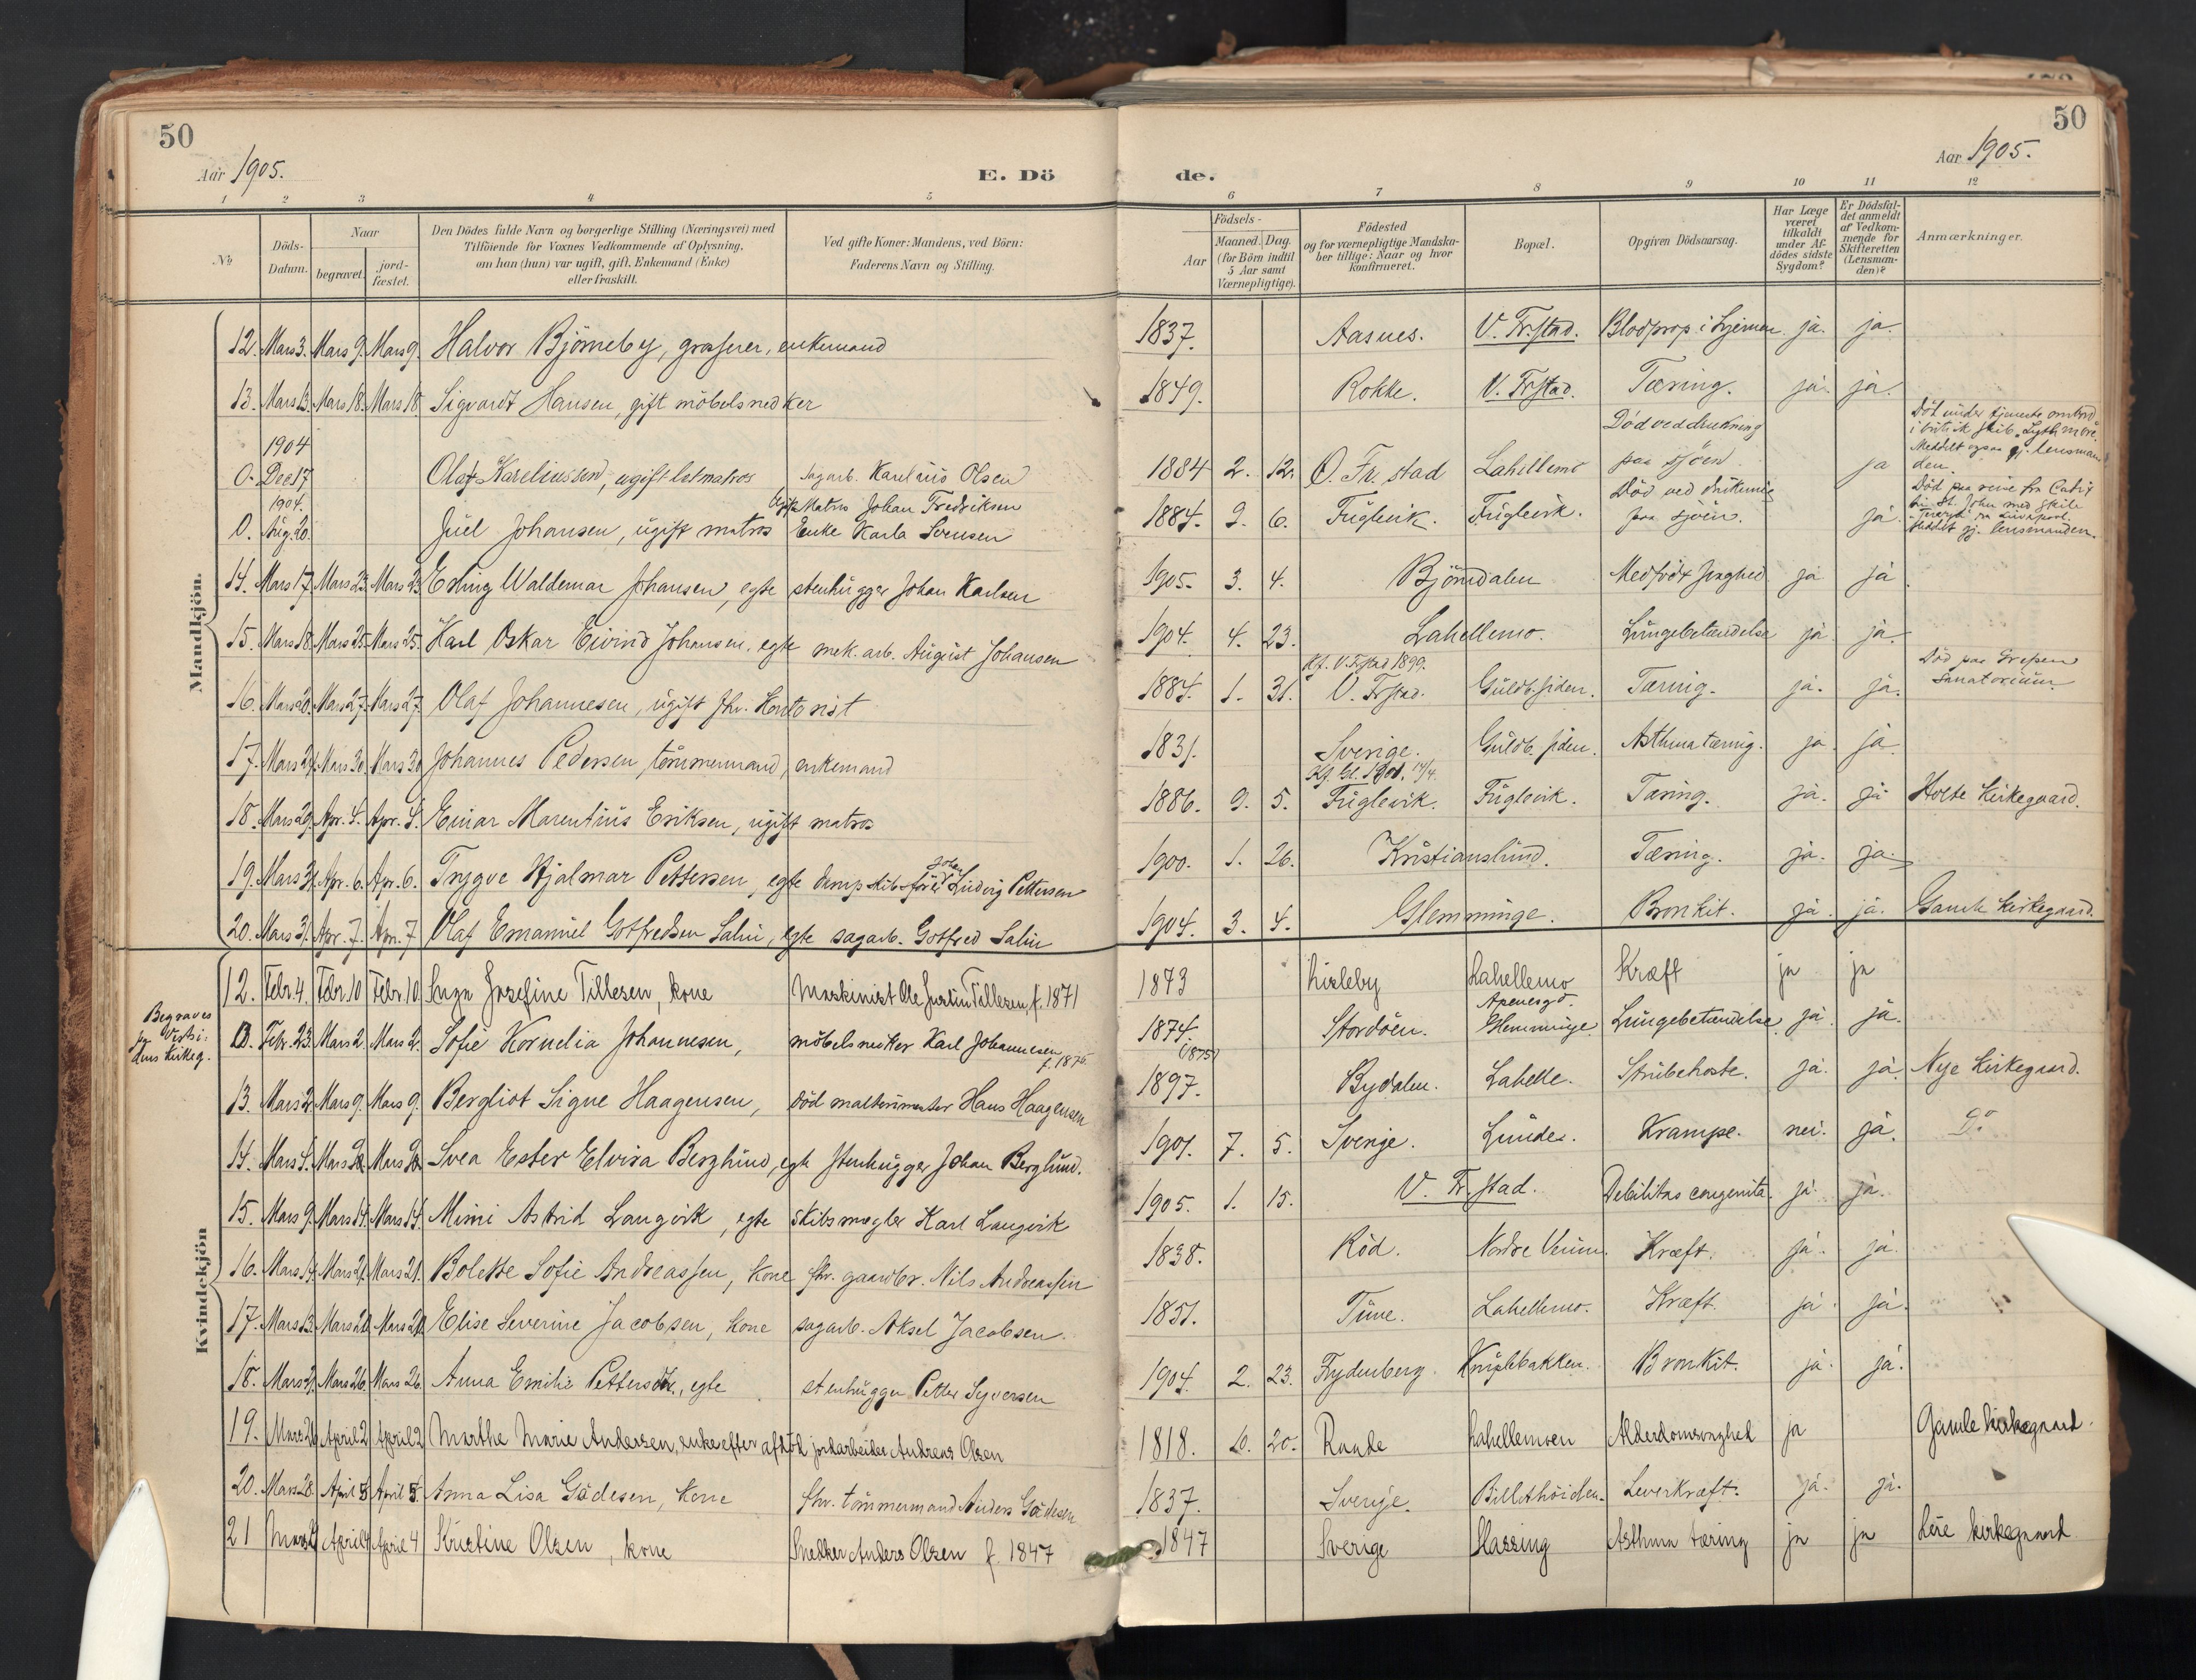 50
50
Aar 1905.
E. Dö
de.
Aar 1905.
1 2 3 4 5 6 7 8 9 10 11 12
No
Döds-Datum.
Naar
begravet.
jord-fæstet.
Den Dödes fulde Navn og borgerlige Stilling (Næringsvei) med
Tilföiende for Voxnes Vedkommende af Oplysning,
om han (hun) var ugift, gift, Enkemand (Enke)
eller fraskilt.
Ved gifte Koner: Mandens, ved Börn:
Faderens Navn og Stilling.
Födsels-
Aar
Maaned. Dag.
(for Börn indtil
5 Aar samt
Værnepligtige).
Födested
og for værnepligtige Mandska-
ber tillige: Naar og hvor
konfirmeret.
Bopæl.
Opgiven Dödsaarsag.
Har Læge
været
tilkaldt
under Af-
dödes sidste
Sygdom?
Er Dödsfal-
det anmeldt
af Vedkom-
mende for
Skifteretten
(Lensman-
den)?
Anmærkninger.
Mandkjön.
12. Mars 3. Mars 9. Mars 9. Halvor Björneby, grosserer, enkemand 1837. Aasnes. V. Fr.stad. Blodprop i hjernen ja. ja.
13. Mars 13. Mars 18. Mars 18 Sigvardt Hansen, gift möbelsnedker 1849. Rokke. V. Frstad. Tæring. ja. ja.
1904
0. Dec 17 Olaf Kareliussen, ugift letmatros sagarb. Karelius Olsen 1884 2. 12. O. Fr. stad Lahellemo Död ved drukning paa sjöen ja
Död under tjeneste ombord
i britisk skib
Meddelt ogsaa gj. lensman
den.
1904.
0. Aug. 20. Juel Johansen, ugift matros Matros Johan Fredriksen
Enke Karla Svensen 1884. 9. 6. Fuglevik. Fuglevik. Död ved drukning paa sjöen. ja.
Död paa reise fra
St. John med skib
Meddelt gj. lensmanden.
14. Mars 17. Mars 23. Mars 23. Erling Waldemar Johansen, egte stenhugger Johan Karlsen 1905. 3. 4. Björndalen Medfödt svaghed ja ja
15. Mars 18. Mars 25. Mars 25. Karl Oskar Eivind Johansen, egte mek. arb. August Johansen 1904. 4. 23. Lahellemo. Lungebetændelse ja. ja.
Kf. V. Frstad 1899.
16. Mars 20. Mars 27. Mars 27. Olaf Johannesen, ugift fhv. Kontorist 1884. 1. 31. V. Frstad. Guldb. siden. Tæring. ja. ja. Död paa Grefsen
Sanatorium.
17. Mars 24. Mars 30. Mars 30 Johannes Pedersen, tömmermand, enkemand 1831. Sverige. Guldb. siden. Asthma tæring. ja ja
Kf. Gl. 1901. 14/4.
18. Mars 29. Apr. 4. Apr. 4. Einar Marentius Eriksen, ugift matros 1886. 9. 5. Fuglevik. Fuglevik. Tæring. ja. ja Holte kirkegaard.
19. Mars 31. Apr. 6. Apr. 6. Trygve Hjalmar Pettersen, egte dampskibsförer Johan Ludvig Pettersen 1900. 1. 26. Kristianslund. Tæring. ja. ja.
20. Mars 31. Apr. 7. Apr. 7 Olaf Emanuel Gotfredsen Salin, egte sagarb. Gotfred Salin 1904. 3. 4. Glemminge. Bronkit. ja. ja. Gamle kirkegaard.
Kvindekjön
12. Febr. 4. Febr. 10 Febr. 10 Inga Josefine Tillesen, kone Maskinist Ole Justin Tillesen, f. 1871 1873 Kirkeby Lahellemo Kræft ja ja
Begraves
paa Vesti-
dens kirkeg.
0. Febr. 23. Mars 2. Mars 2. Sofie Kornelia Johannesen, möbelsnedker Karl Johannesen f. 1875. 1874. (1875) Stordöen. Apenesgd. Glemminge Lungebetændelse. ja. ja.
13. Mars 2. Mars 9. Mars 9. Bergliot Signe Haagensen, död maltmester Hans Haagensen 1897. Bydalen. Lahelle. Strubehoste. ja. ja. Nye kirkegaard.
14. Mars 4. Mars Mars Svea Ester Elvira Berglund, egte stenhugger Johan Berglund. 1901. 7. 5. Sverige. Lunde. Krampe. nei. ja. Do
15. Mars 9. Mars 14. Mars 14. Mimi Astrid Langvik, egte skibsmægler Karl Langvik 1905. 1. 15. V. Fr.stad. Debilitas congenita. ja. ja.
16. Mars 14. Mars 21. Mars 21. Bolette Sofie Andreassen, kone fhv. gaardbr. Nils Andreassen 1838. Röd. Nordre Kræft. ja. ja.
17. Mars 13. Mars 20. Mars 20. Elise Severine Jacobsen, kone sagarb. Aksel Jacobsen. 1851. Tune. Lahellemo. Kræft. ja. ja.
18. Mars 21. Mars 26. Mars 26. Anna Emilie Pettersen, egte stenhugger Petter Syversen 1904. 2. 23. Frydenberg. Bronkit. ja. ja.
19. Mars 26 April 2 April 2 Marthe Marie Andersen, enke efter afdöd jordarbeider Andreas Olsen 1818. 10. 20. Raade Lahellemoen Alderdomssvaghed ja Gamle kirkegaard.
20. Mars 28. April 5 April 5. Anna Lisa Gädesen, kone fhv. tömmermand Anders Gädesen 1837. Sverige. Leverkræft. ja. ja.
21 Mars April 4 April 4 Kristine Olsen, kone Snedker Anders Olsen f. 1847 1847 Sverige Hassing Asthma tæring ja ja Leie kirkegaard